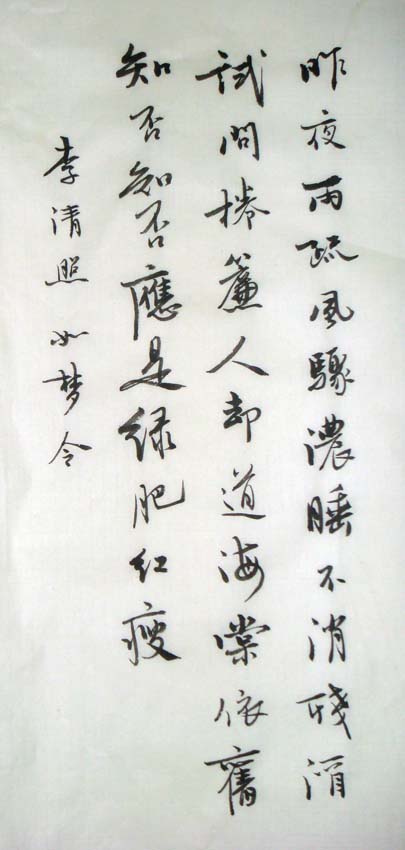 昨夜雨疏風驟濃睡不消残酒
試問捲簾人却道海棠依舊
知否知否應是绿肥红瘦
李清照如梦令